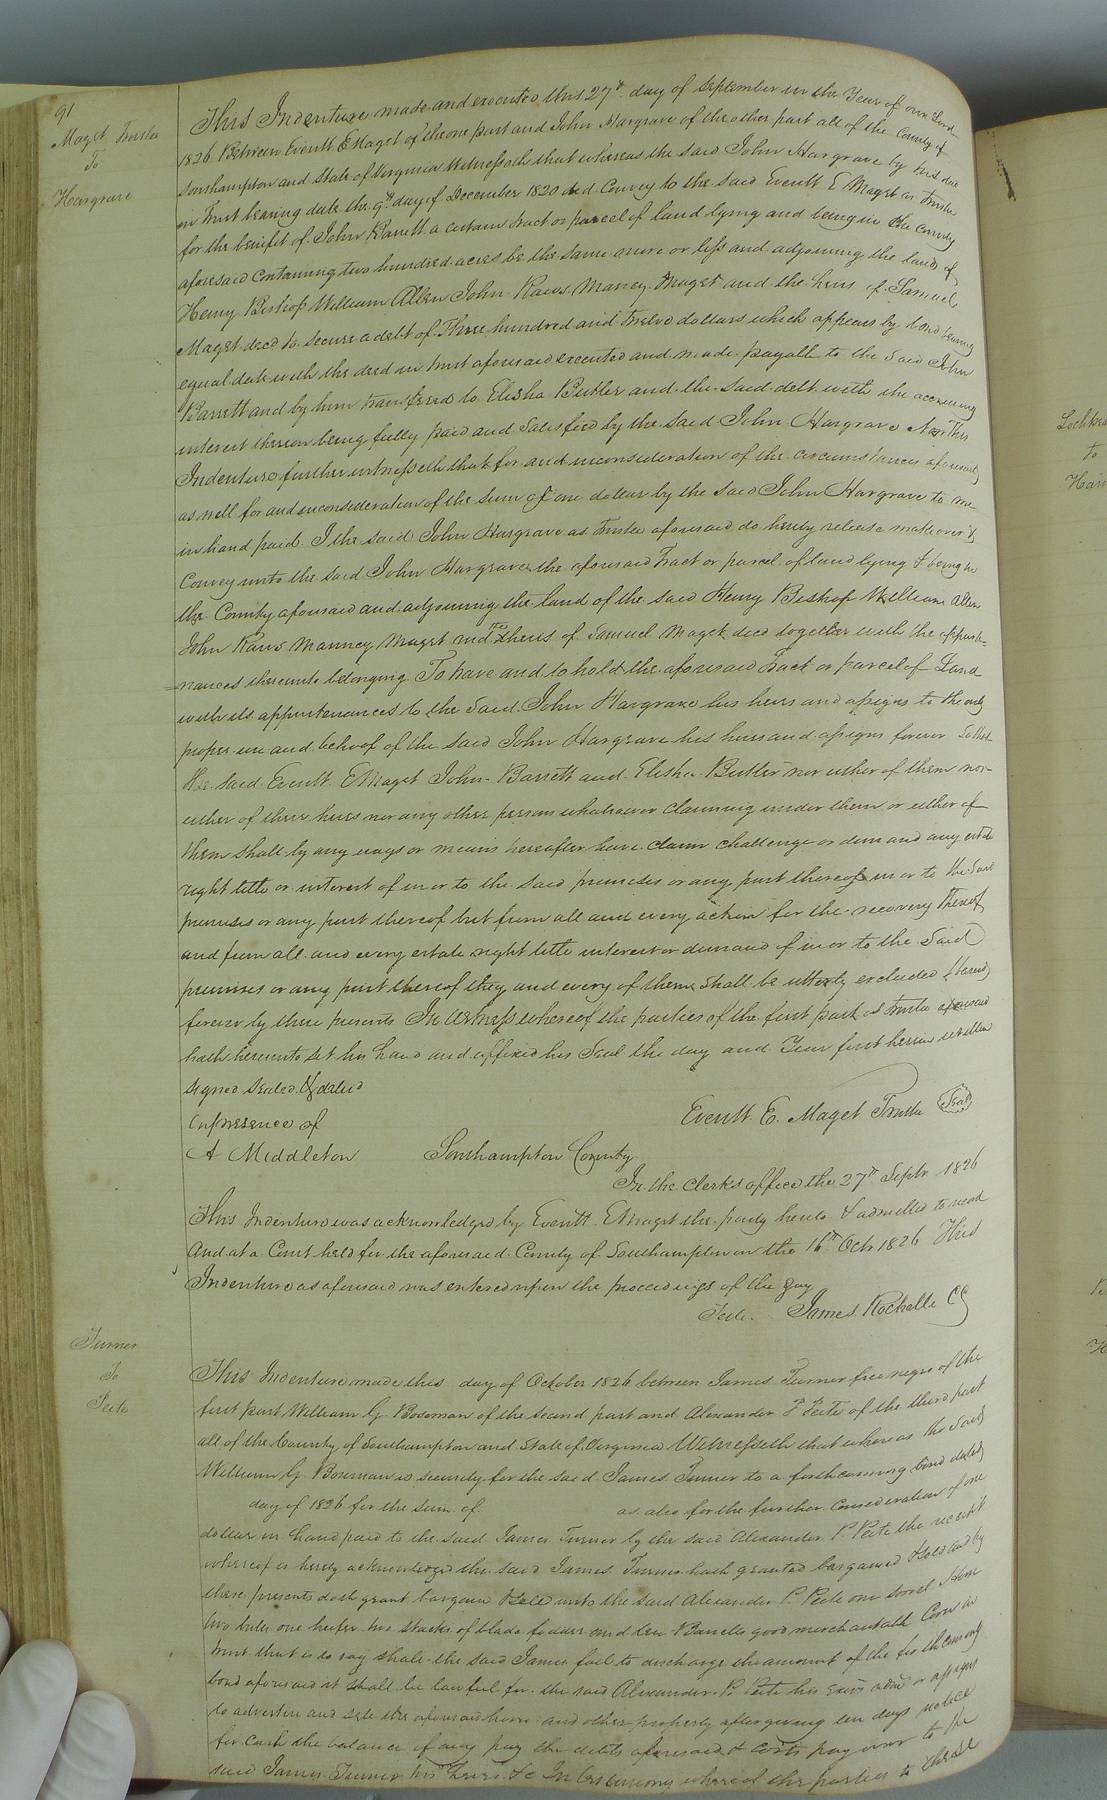 91
Maget Trustee
To
Hargrave
This Indenture made and executed this 27th day of September in the Year of our Lord
1826 Between Everitt E Maget of the one part and John Hargrave of the other part all of the County of
Southampton and State of Virginia Witnesseth that whereas the said John Hargrave by his deed
in Trust bearing date the 9th day of December 1820 did Convey to the said Everitt E Maget as Trustee
for the benifit of John Barrett a certain tract or parcel of land lying and being in the County
aforesaid Containing two hundred acres be the same more or less and adjoining the lands of
Henry Bishop William Allen John Raws Manney Maget and the heirs of Samuel
Maget decd to secure a debt of Three hundred and twelve dollars which appears by bond bearing
equal date with the deed in trust aforesaid executed and made payable to the said John
Barrett and by him transfered to Elisha Butler and the said debt with the accruing
interest thereon being fully paid and Satisfied by the said John Hargrave Now This
Indenture further witnesseth that for and inconsideration of the circumstances aforesaid
as well for and inconsideration of the Sum of one dollar by the said John Hargrave to me
in hand paid I the said John Hargrave as Trustee aforesaid do hereby release make over &
Convey unto the said John Hargrave the aforesaid Tract or parcel of land lying & being in
the County aforesaid and adjoining the land of the said Henry Bishop William Allen
John Raws Manney Maget and the heirs of Samuel Maget decd together with the appurte=
=nances thereunto belonging To have and to hold the aforesaid Tract or parcel of Land
with its appurtenances to the Said John Hargrave his heirs and assigns to the only
proper use and behoof of the said John Hargrave his heirs and assigns forever So that
the said Everitt E Maget John Barrett and Elisha Butler nor either of them nor
either of their heirs nor any other person whatsoever Claiming under them or either of
them shall by any ways or means hereafter have claim challenge or demand any estate
right title or interest of in or to the said premises or any part thereof in or to the Said
premises or any part thereof but from all and every action for the recovery thereof
and from all and every estate right title interest or demand of in or to the Said
premises or any part thereof they and every of them shall be utterly excluded & barred
forever by these presents In Witness whereof the parties of the first part as Trustee aforesaid
hath hereunto set his hand and affixed his Seal the day and Year first herein written
Signed Sealed & delivd
in presence of
Everitt E. Maget Trustee Seal
A Middleton Southampton County
In the Clerks office the 27th Septr 1826
This Indenture was acknowledged by Everitt E Maget the party hereto & admitted to record
And at a Court held for the aforesaid County of Southampton on the 16th Octr 1826 This
Indenture as aforesaid was entered upon the proceedings of the day
Teste James Rochelle CC
Turner
To
Peete
This Indenture made this day of October 1826 between James Turner free negro of the
first part William G Bozeman of the second part and Alexander P Peete of the third part
all of the County of Southampton and State of Virginia Witnesseth that whereas the Said
William G Bozeman is security for the said James Turner to a forthcoming bond dated
day of 1826 for the sum of as also for the further Consideration of one
dollar in hand paid to the said James Turner by the said Alexander P. Peete the receipt
whereof is hereby acknowledged the said James Turner hath granted bargained & sold and by
these presents doth grant bargain & sell unto the said Alexander P. Peete one sorrel Horse
two bulls one heifer two stacks of blade fodder and ten Barrells good merchantable Corn in
trust that is to say shale the said James fail to discharge the amount of the forthcoming
bond aforesaid it shall be lawful for the said Alexander P. Peete his Exors admr or assigns
to advertise and sell the aforesaid horse and other property after giving ten days notice
for Cash the balance if any pay the debts aforesaid & costs pay over to the
said James Turner his heirs &c In testimony whereof the parties to these
Lockhart
to